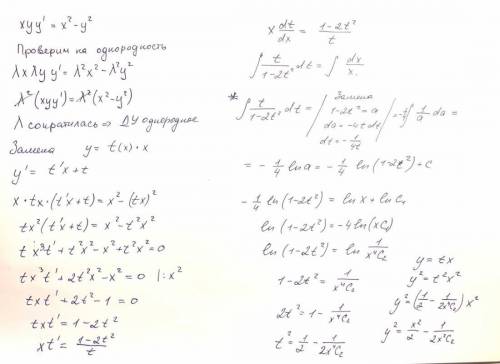 xyy' = x² - y²
Проверим на однородность
λxλyy' = λ²x² - λ²y²
λ²(xyy') = λ²(x² - y²)
λ сократилась ⇒ ДУ однородное
Замена y = t(x)·x
y' = t'x + t
x·tx·(t'x + t) = x² - (tx)²
tx²(t'x + t) = x² - t²x²
t x³t' + t²x² - x² + t²x² = 0
tx³t' + 2t²x² - x² = 0 |: x²
txt' + 2t² - 1 = 0
txt' = 1 - 2t²
xt' = (1 - 2t²)/t
x dt/dx = (1 - 2t²)/t
∫ t/(1 - 2t²) dt = ∫ dx/x
* ∫ t/(1 - 2t²) dt = | Замена 1 - 2t² = a da = -4t dt dt = -1/4t | = -1/4 ∫ 1/a da =
= -1/4 ln a = -1/4 ln(1 - 2t²) + C
-1/4 ln(1 - 2t²) = ln x + ln C₁
ln(1 - 2t²) = -4 ln(xC₁)
ln(1 - 2t²) = ln 1/(x⁴C₂)
1 - 2t² = 1/(x⁴C₂)
2t² = 1 - 1/(x⁴C₂)
t² = 1/2 - 1/(2x⁴C₂)
y = tx
y² = t²x²
y² = (1/2 - 1/(2x⁴C₂)) x²
y² = x²/2 - 1/(2x²C₂)